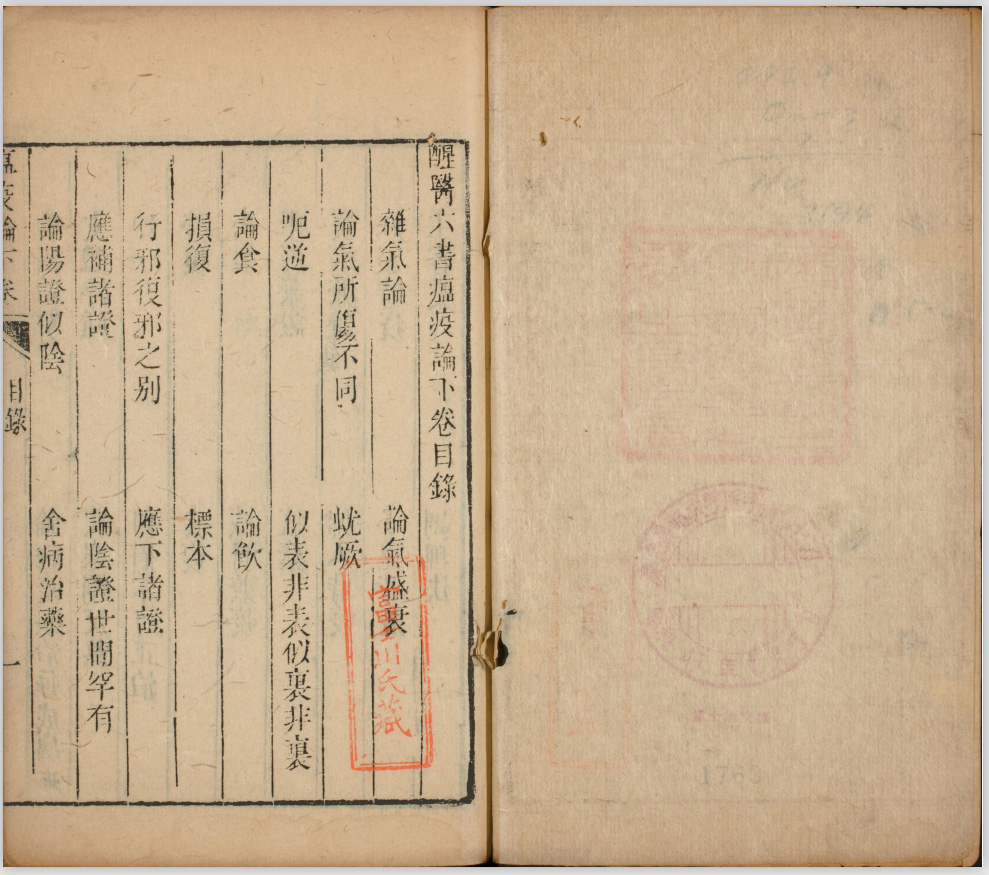 醒醫六書瘟疫論下卷目錄
雜氣論　論氣盛衰
論氣所傷不同　蚘厥
呃逆　似表非表似裏非裏
論食　論飲
損復　標本
行邪復邪之别　應下諸證
應補諸證　論陰證世間罕有
論陽證似陰　舍病治藥
瘟疫論下卷　目錄　一
富士川氏藏
1763